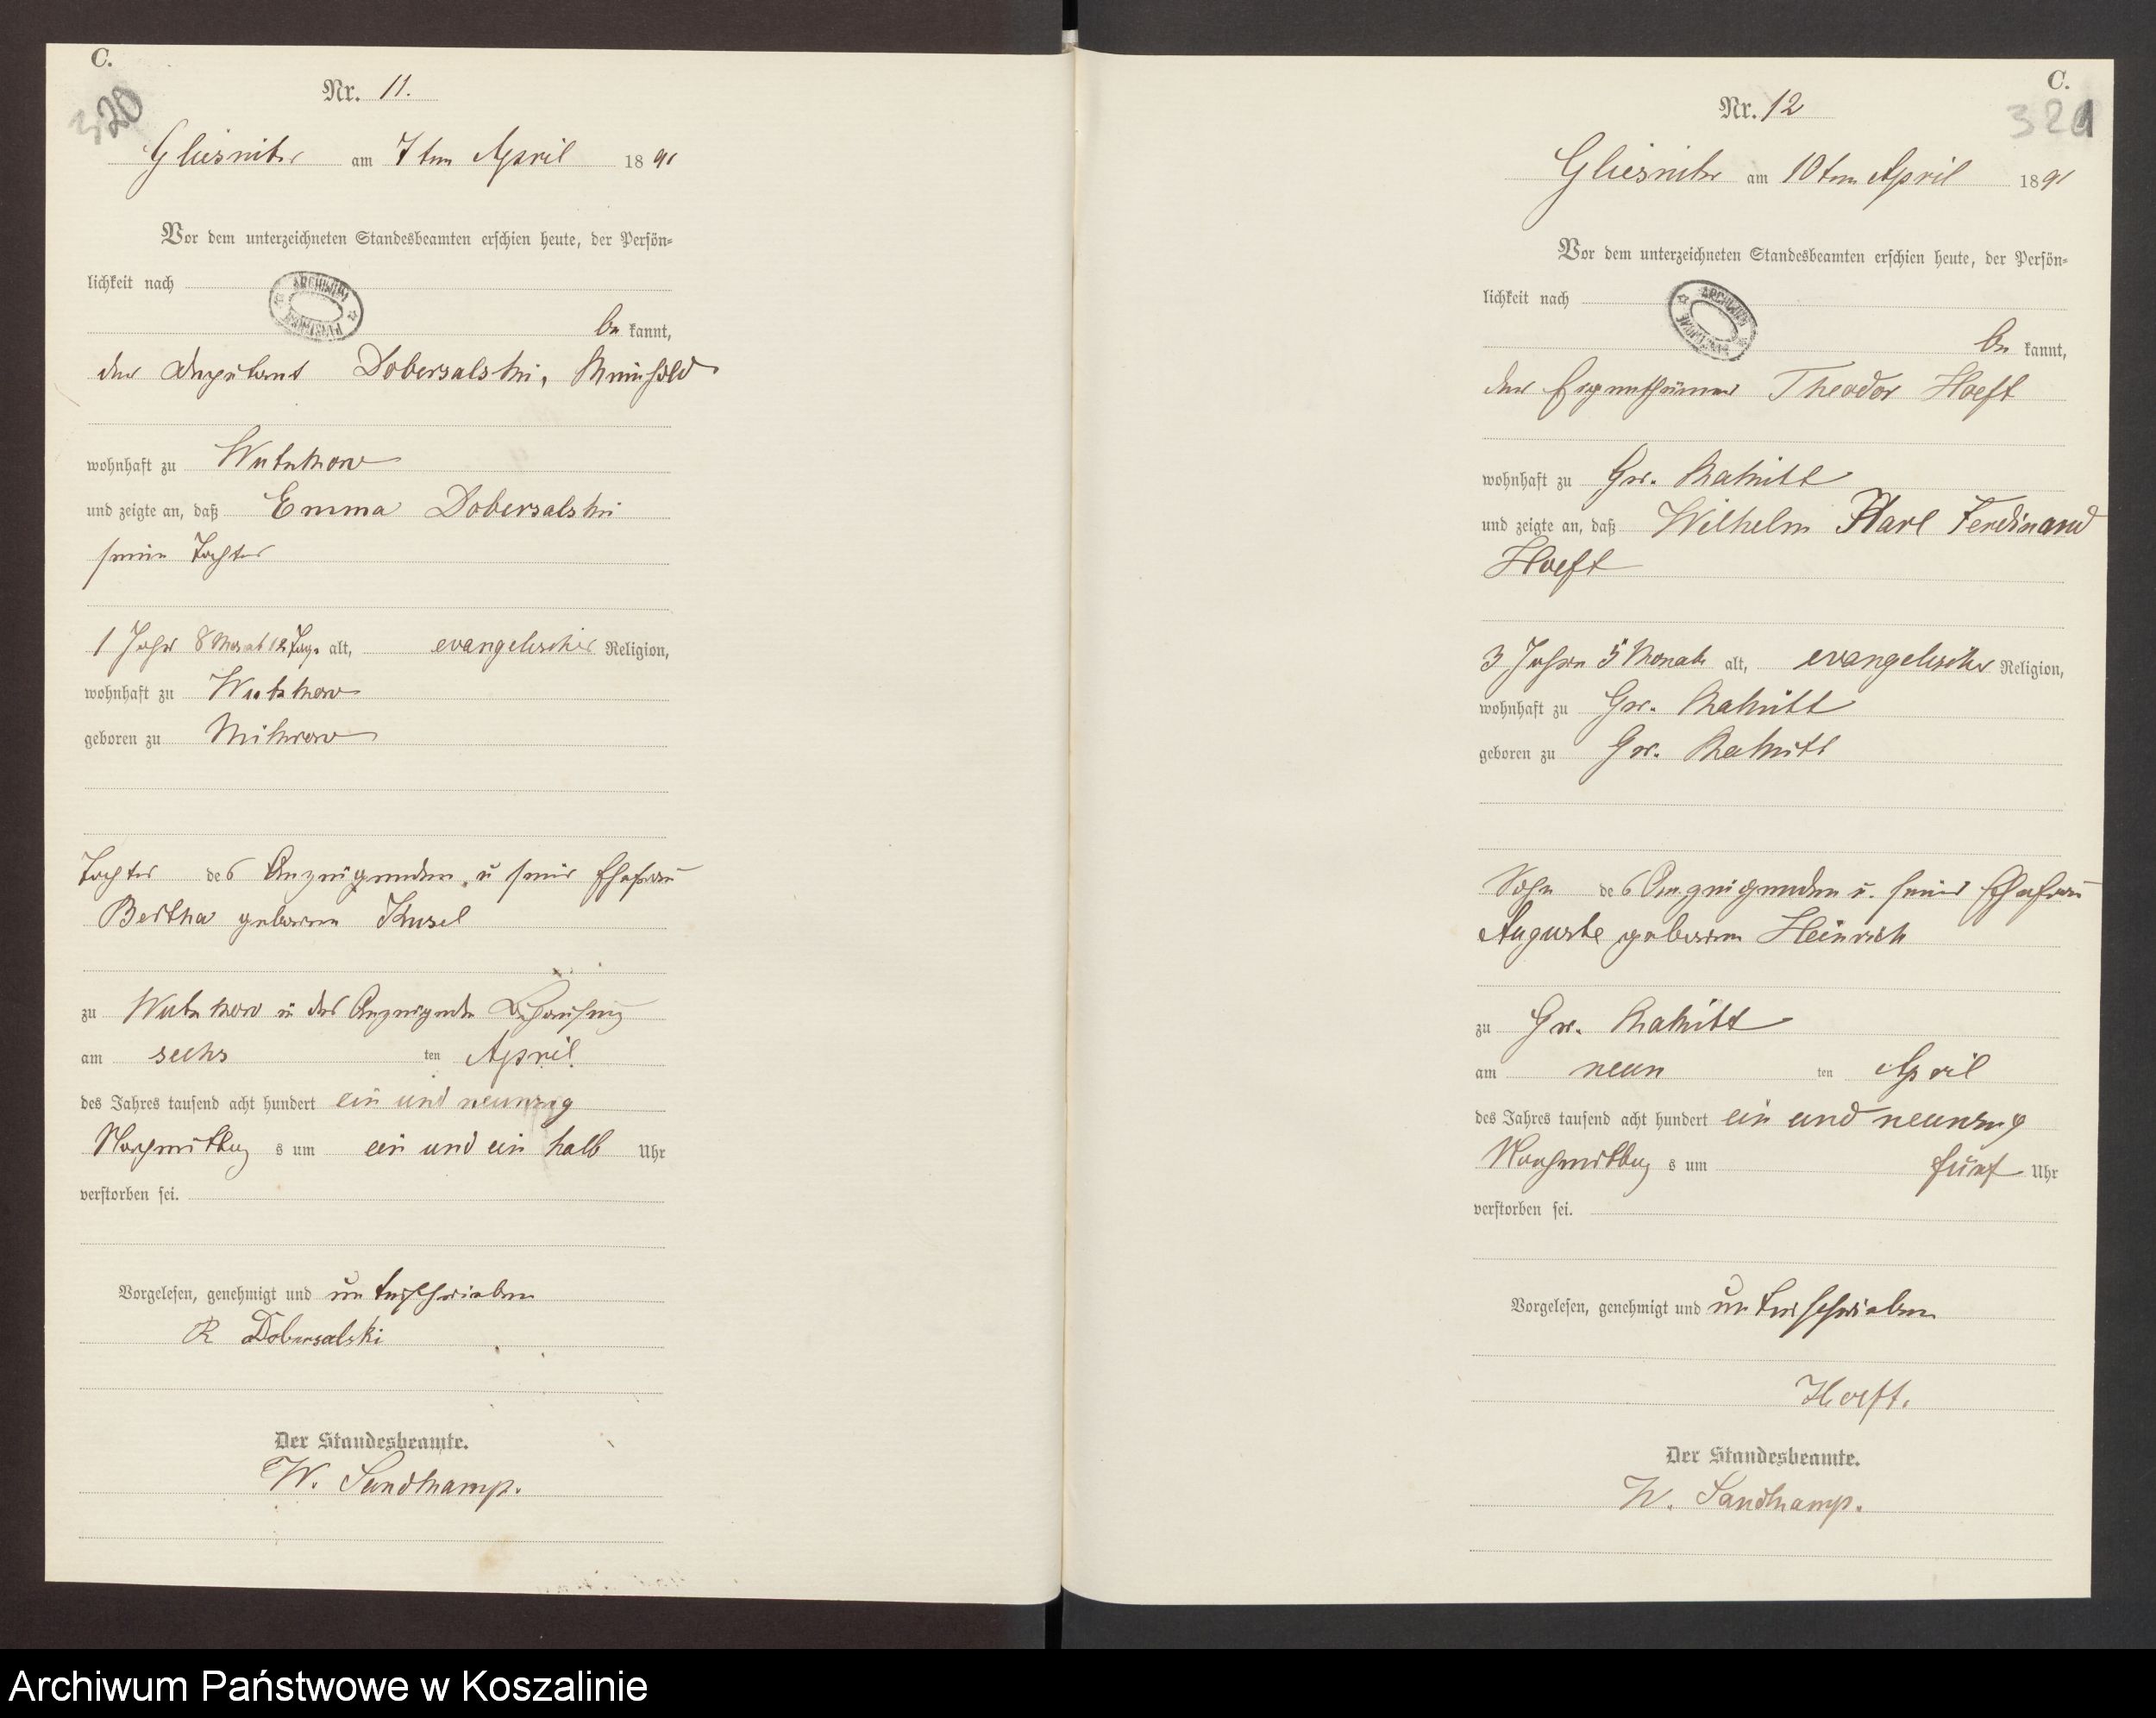 C.
320
Nr. 11.
Gliesnitz am 7ten April 1891
Vor dem unterzeichneten Standesbeamten erschien heute, der Persön-
lichkeit nach
be kannt,
der Deputant Dobersalski, Reinhold
wohnhaft zu Wutzkow
und zeigte an, daß Emma Dobersalski
seine Tochter
1 Jahr 8 Monat 12 Tage alt, evangelischer Religion,
wohnhaft zu Wutzkow
geboren zu Mikrow
Tochter des Anzeigenden u seiner Ehefrau
Bertha geborenen Kusel
zu Wutzkow in des Anzeigenden Behausung
am sechs ten April
des Jahres tausend acht hundert ein und neunzig
Nachmittag s um ein und ein halb Uhr
verstorben sei.
Vorgelesen, genehmigt und unterschrieben
R Dobersalski
Der Standesbeamte.
W. Sandkamp.
C.
321
Nr. 12
Gliesnitz am 10ten April 1891
Vor dem unterzeichneten Standesbeamten erschien heute, der Persön-
lichkeit nach
be kannt,
der Eigenthümer Theodor Hoeft
wohnhaft zu Gr. Rakitt
und zeigte an, daß Wilhelm Karl Ferdinand
Hoeft
3 Jahre 5 Monate alt, evangelischer Religion,
wohnhaft zu Gr. Rakitt
geboren zu Gr. Rakitt
Sohn des Anzeigenden u. seiner Ehefrau
Auguste geborenen Heinrich
zu Gr. Rakitt
am neun ten April
des Jahres tausend acht hundert ein und neunzig
Nachmittag s um fünf Uhr
verstorben sei.
Vorgelesen, genehmigt und unterschrieben
Hoeft.
Der Standesbeamte.
W. Sandkamp.
Archiwum Państwowe w Koszalinie